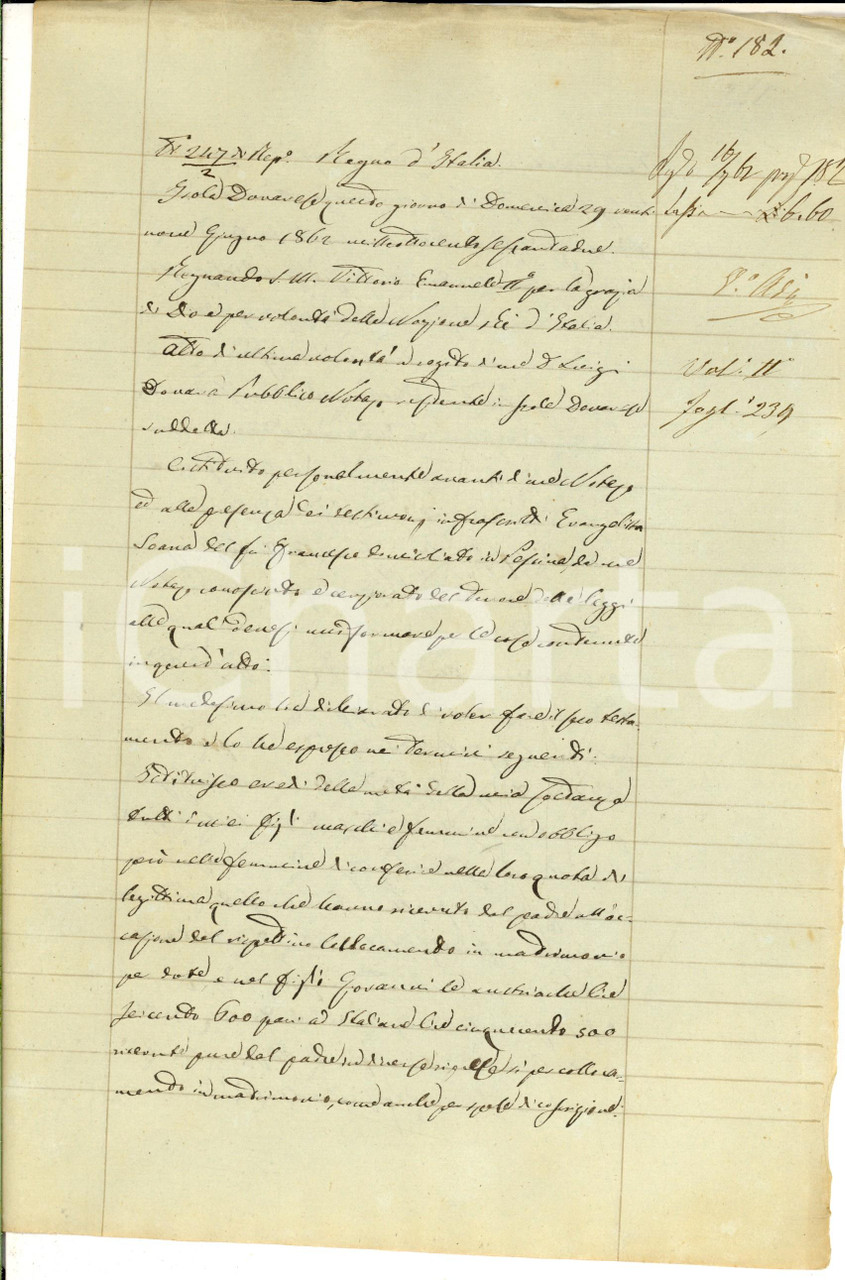 N.° 182.
N° 247 di Rep.° Regno d'Italia.
2
Isola Dovarese questo giorno di Domenica 29 venti
nove Giugno 1862 milleottocentosessantadue.
Regnando S. M. Vittorio Emanuele II° per la grazia
di Dio e per volontà della Nazione Re d'Italia.
Atto di ultima volontà a rogito di me D. Luigi
Dovara Pubblico Notajo residente in Isola Dovarese
suddetta.
Costituito personalmente avanti di me Notajo
ed alla presenza dei testimonj infrascritti Evangelista
Soana del fu Francesco domiciliato in Pessina, da me
Notajo conosciuto e cerziorato del tenore delle leggi
alle quali devesi uniformare per le cose contenute
in quest'atto.
Il medesimo ha dichiarato di voler fare il suo testa-
mento e lo ha espresso nei termini seguenti:
Istituisco eredi della metà della mia sostanza
tutti i miei figli maschi e femmine con obbligo
però nelle femmine di conferire nella loro quota di
legittima quello che hanno ricevuto dal padre all'oc-
casione del rispettivo collocamento in matrimonio
per dote e nel figlio Giovanni le austriache lire
seicento 600 pari ad Italiane lire cinquecento 500
ricevute pure dal padre in diverse riprese sì per colloca-
mento in matrimonio, come anche per spese di coscrizione.
6.60
Vol. II°
Fogl. 234
icharta